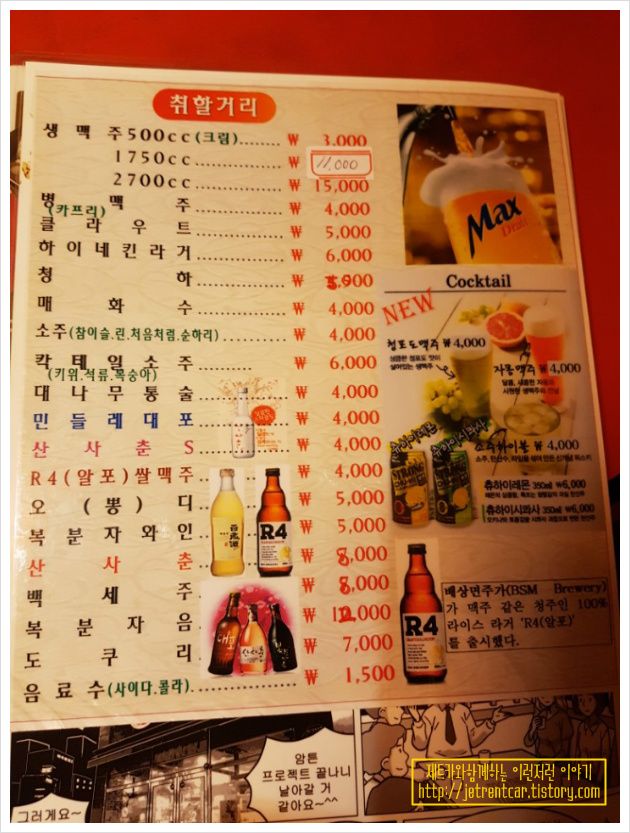 취할거리
생맥주500cc(크림)........ ₩ 3,000
1750cc ........ ₩ 11,000
2700cc ........ ₩ 15,000
병맥주 ........ ₩ 4,000
(카프리)
클라우트 ........ ₩ 5,000
하이네킨라거 ........ ₩ 6,000
청하 ........ ₩
매화수 ........ ₩ 4,000
소주(참이슬.린.처음처럼.순하리)........ ₩ 4,000
칵테일소주 ........ ₩ 6,000
(키위.석류.복숭아)
대나무통술 ........ ₩ 4,000
민들레대포 ........ ₩ 4,000
산사춘S ........ ₩ 4,000
R4(알포)쌀맥주 ........ ₩ 4,000
오(뽕)디 ........ ₩ 5,000
복분자와인 ........ ₩ 5,000
산사춘 ........ ₩ 8,000
백세주 ........ ₩ 8,000
복분자음 ........ ₩ 12,000
도쿠리 ........ ₩ 7,000
음료수(사이다.콜라)........ ₩ 1,500
Max
Draft
Cocktail
NEW
청포도맥주 ₩4,000
상큼한 청포도 맛이
살아있는 생맥주
자몽맥주 ₩4,000
달콤, 새콤한 자몽과
시원한 생맥주의 만남
소주하이볼 ₩ 4,000
츄하이레몬
츄하이시콰사
STRONG
츄하이레몬 350㎖ ₩6,000
츄하이시콰사 350㎖ ₩6,000
R4
R4
대포
산사춘
배상면주가(BSM Brewery)
가 맥주 같은 청주인 100%
라이스 라거 'R4(알포)'
를 출시했다.
암튼
프로젝트 끝나니
날아갈 거
같아요~^^
그러게요~
제트카와함께하는 이런저런 이야기
http://jetrentcar.tistory.com